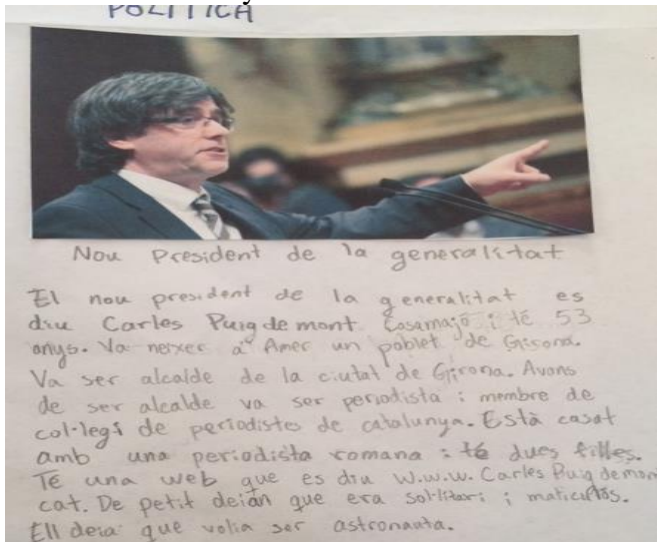 POLÍTICA
Nou President de la generalitat
El nou president de la generalitat es
diu Carles Puigdemont Casamajó i té 53
anys. Va neixer a Amer un poblet de Girona.
Va ser alcalde de la ciutat de Girona. Avans
de ser alcalde va ser periodista i membre de
col·legi de periodistes de catalunya. Està casat
amb una periodista romana i té dues filles.
Té una web que es diu W.w.w. Carles Puigdemon
cat. De petit deian que era sol·litari i
Ell deia que volia ser astronauta.